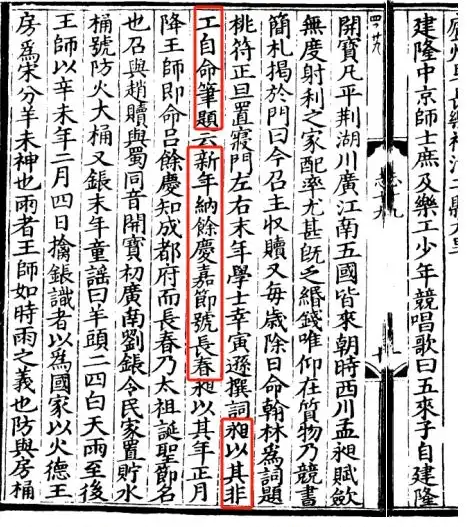 建隆中京師士庶及樂工少年競唱歌曰五來子自建隆
開寶凡平荊湖川廣江南五國皆來朝時西川孟昶賦歛
無度射利之家配率尤甚既乏緡錢唯仰在質物乃競書
簡札揭於門曰今召主收贖又每歲除日命翰林為詞題
桃符正旦置寢門左右末年學士幸寅遜撰詞昶以其非
工自命筆題云新年納餘慶嘉節號長春昶以其年正月
降王師即命呂餘慶知成都府而長春乃太祖誕聖節名
也召與趙贖與蜀同音開寶初廣南劉鋹令民家置貯水
桶號防火大桶又鋹末年童謠曰羊頭二四白天雨至後
王師以辛未年二月四日擒鋹識者以為國家以火德王
房為宋分羊未神也雨者王師如時雨之義也防與房桶